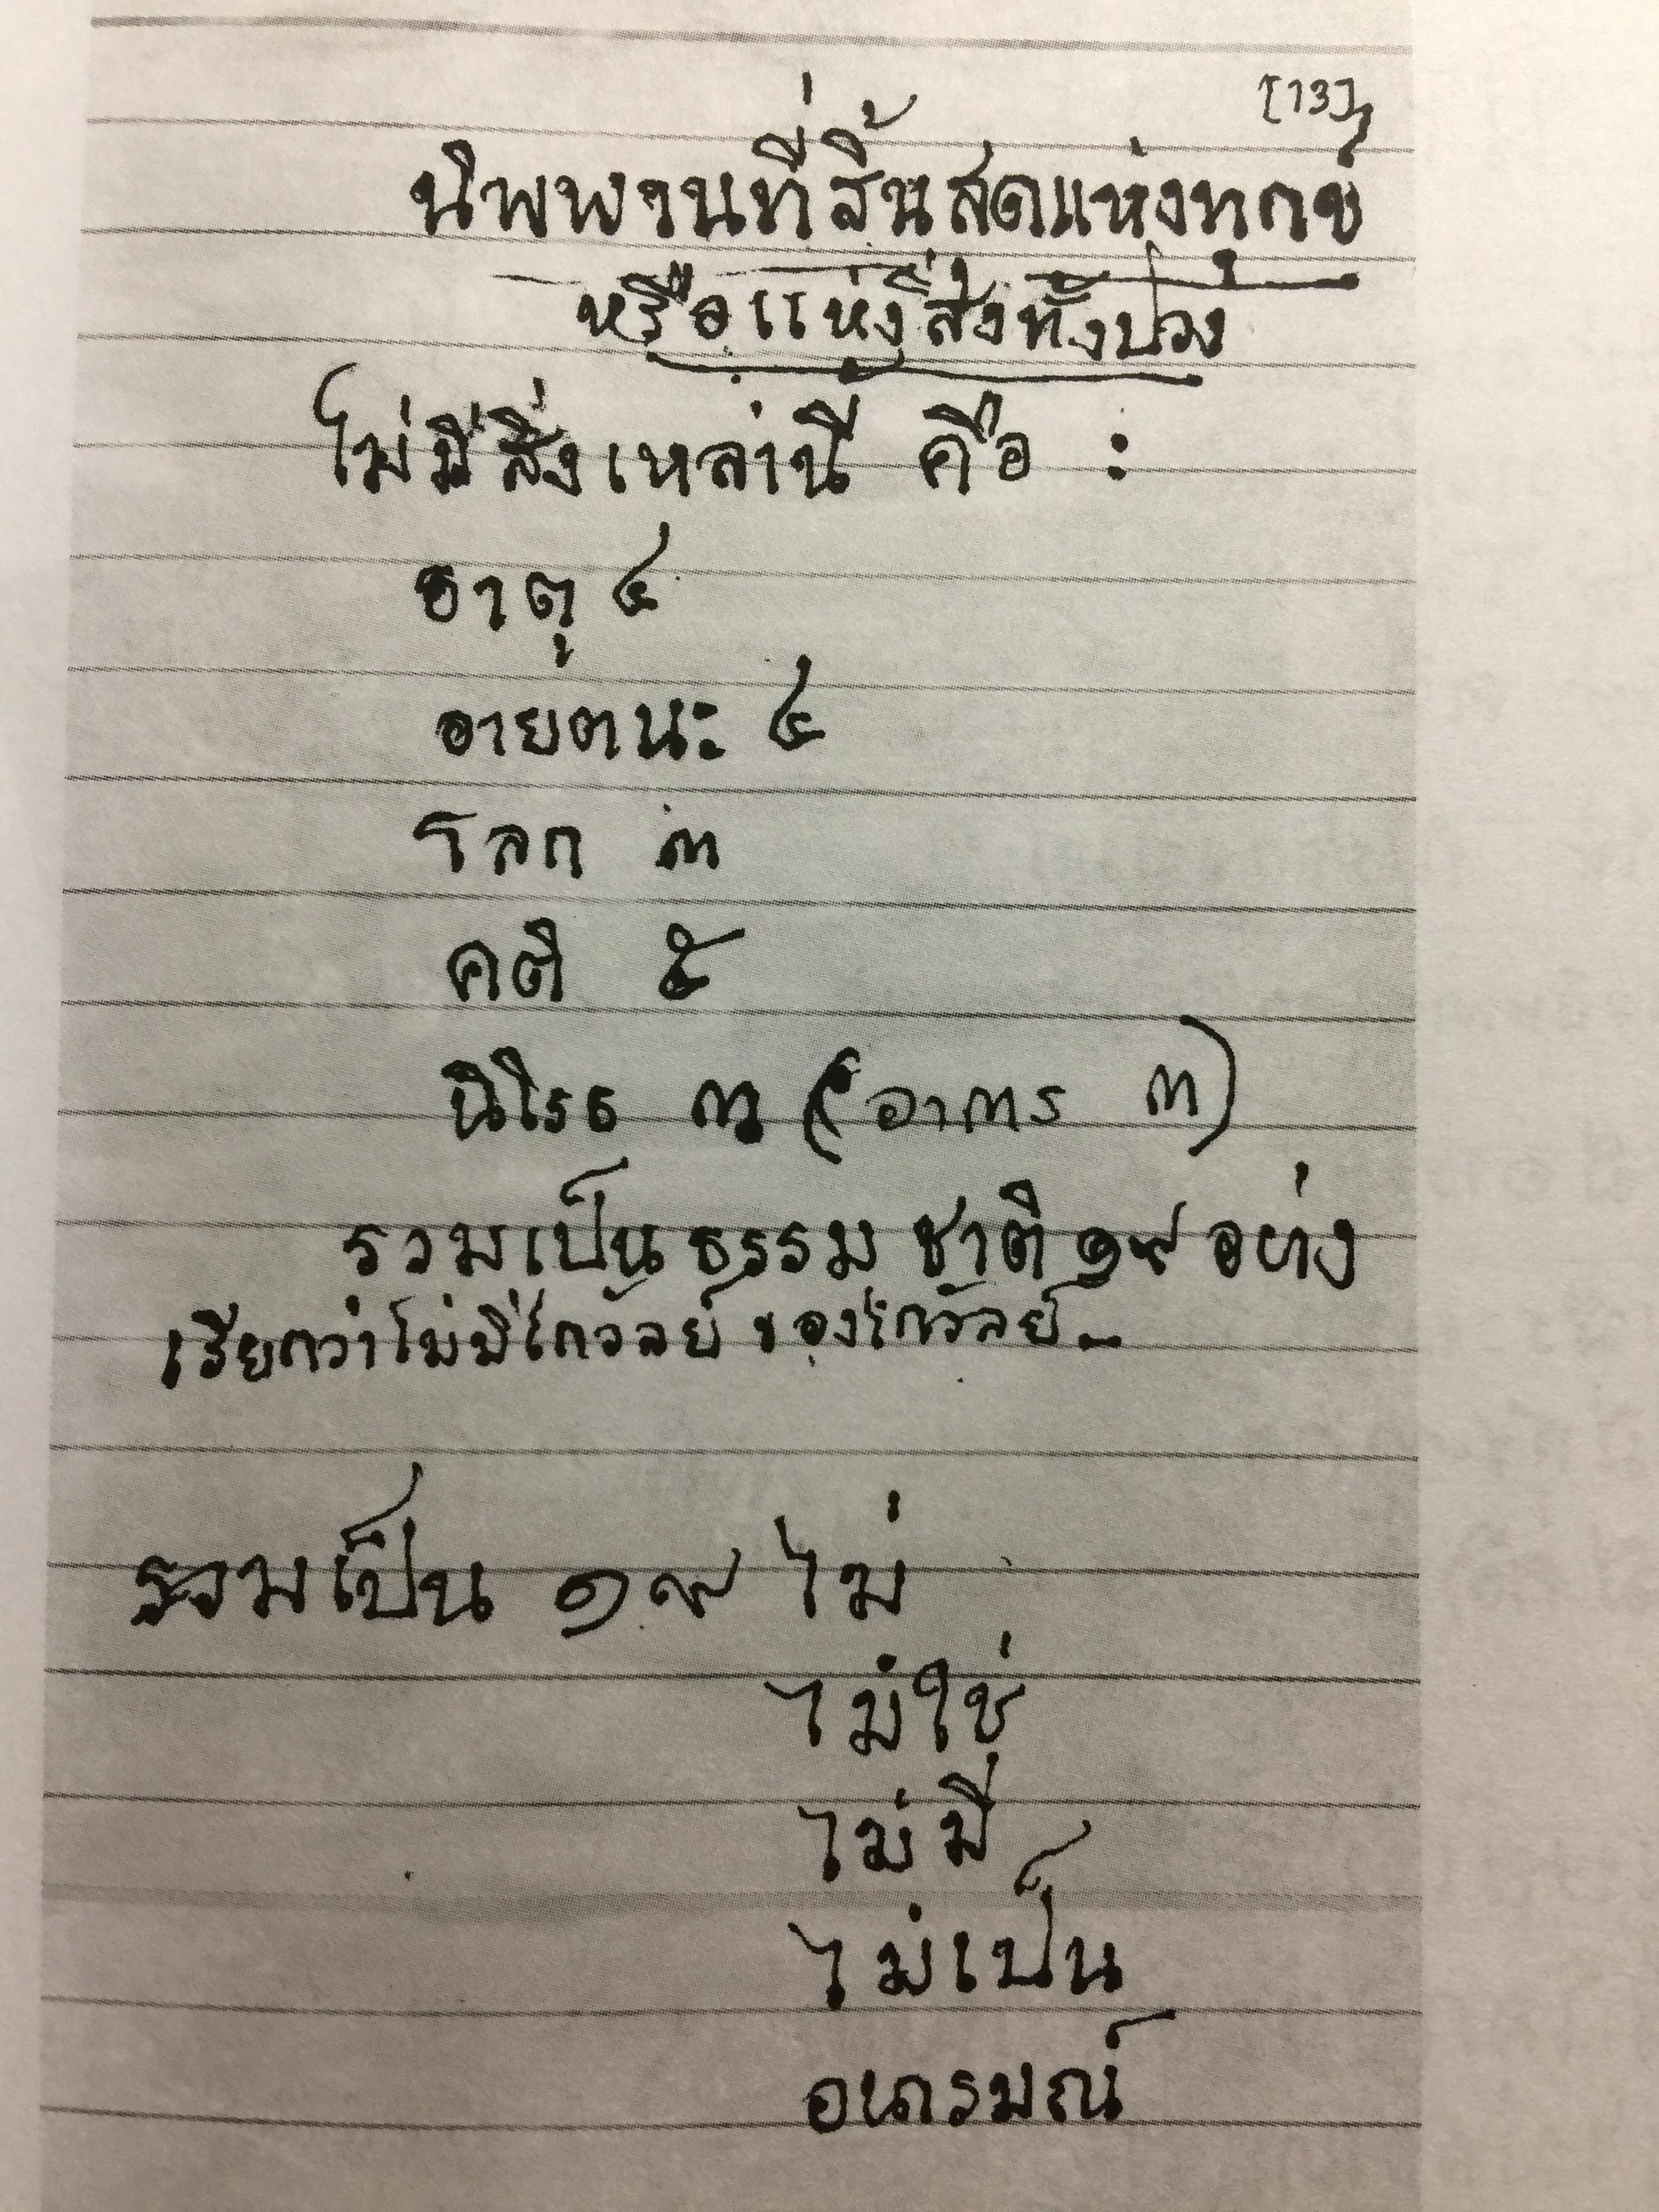 [13]
นิพพานที่สิ้นสุดแห่งทุกข์
หรือแห่งสิ่งทั้งปวง
ไม่มีสิ่งเหล่านี้ คือ :
ธาตุ ๔
อายตนะ ๔
โลก ๓
คติ ๕
นิโรธ ๓ (อาการ ๓)
รวมเป็นธรรมชาติ ๑๙ อย่าง
เรียกว่าไม่มีไกวัลย์ ของไกวัลย์ –
รวมเป็น ๑๙ ไม่
ไม่ใช่
ไม่มี
ไม่เป็น